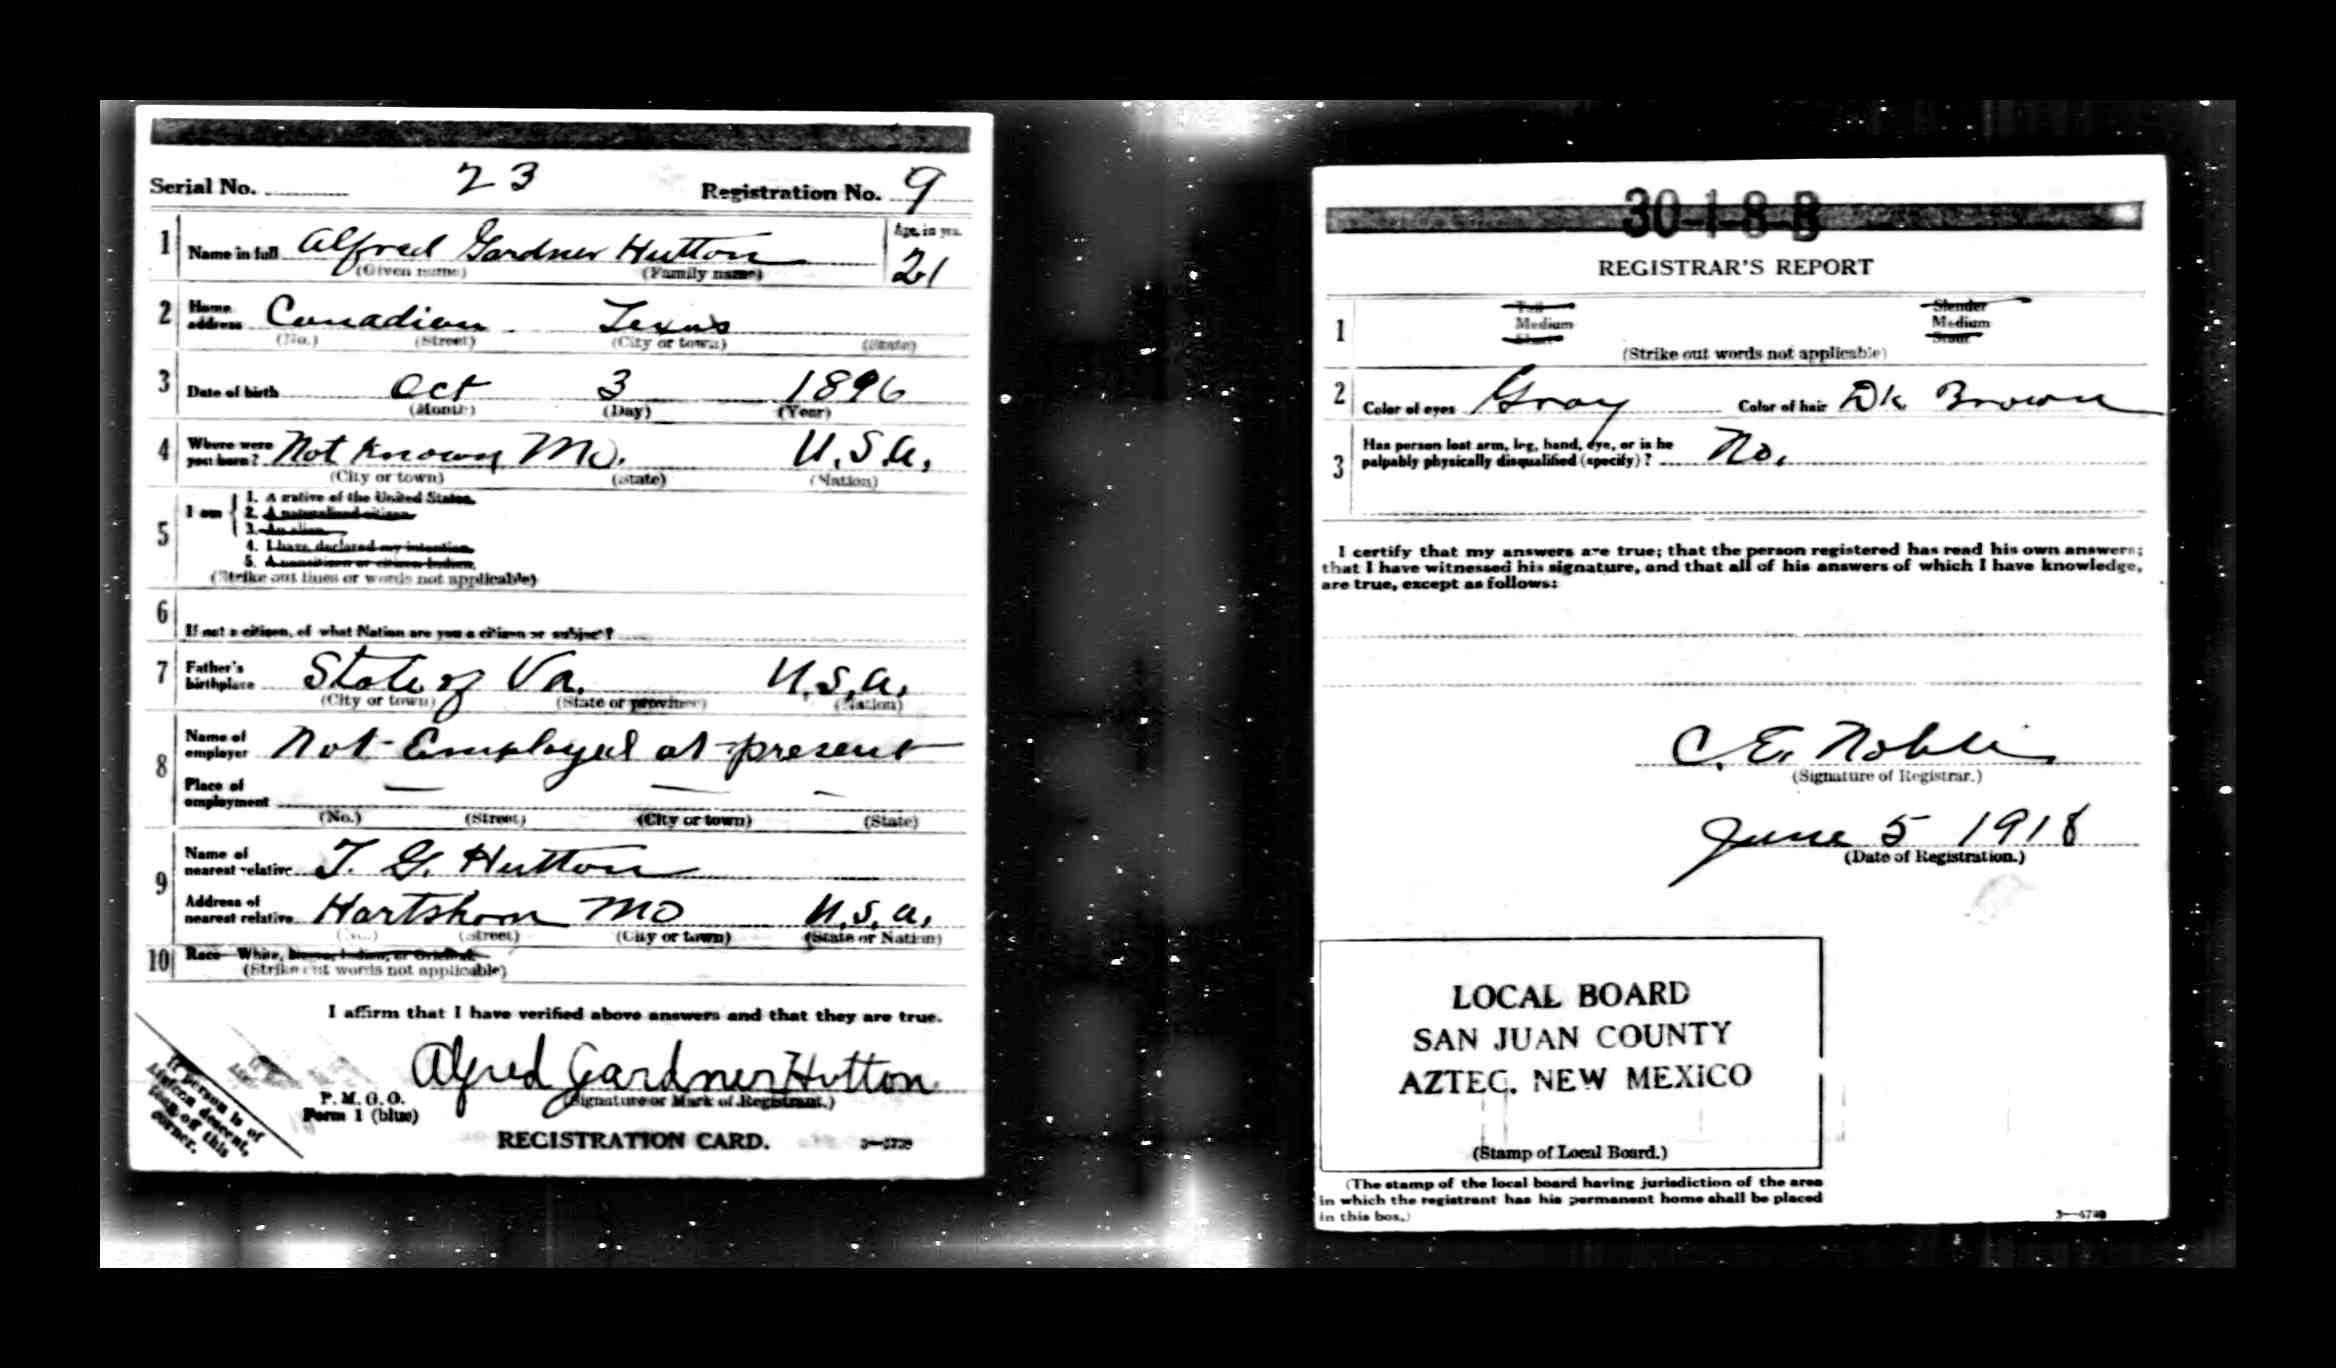 Serial No. 23 Registration No. 9
1 Name in full Alfred Gardner Hutton Age, in yrs. 21
(Given name) (Family name)
2 Home address Canadian Texas
(No.) (Street) (City or town) (State)
3 Date of birth Oct 3 1896
(Month) (Day) (Year)
4 Where were you born? Not Known Mo. U.S.A.
(City or town) (State) (Nation)
5 I am
1. A native of the United States.
2. A naturalized citizen.
3. An alien.
4. I have declared my intention.
5. A noncitizen or citizen Indian.
(Strike out lines or words not applicable)
6 If not a citizen, of what Nation are you a citizen or subject?
7 Father's birthplace State of Va. U.S.A.
(City or town) (State or province) (Nation)
8 Name of employer Not Employed at present
Place of employment — — —
(No.) (Street) (City or town) (State)
9 Name of nearest relative T. G. Hutton
Address of nearest relative Hartshorn MO U.S.A.
(No.) (Street) (City or town) (State or Nation)
10 Race—White, Negro, Indian, or Oriental.
(Strike out words not applicable)
I affirm that I have verified above answers and that they are true.
Alfred Gardner Hutton
(Signature or Mark of Registrant.)
P. M. G. O.
Form 1 (blue)
REGISTRATION CARD. 3—5739
If person is of
African descent,
tear off this
corner.
30-1-8-B
REGISTRAR'S REPORT
1 Tall Slender
Medium Medium
Short Stout
(Strike out words not applicable)
2 Color of eyes Gray Color of hair Dk Brown
3 Has person lost arm, leg, hand, eye, or is he
palpably physically disqualified (specify)? No.
I certify that my answers are true; that the person registered has read his own answers;
that I have witnessed his signature, and that all of his answers of which I have knowledge,
are true, except as follows:
C. E.
(Signature of Registrar.)
June 5 1918
(Date of Registration.)
LOCAL BOARD
SAN JUAN COUNTY
AZTEC, NEW MEXICO
(Stamp of Local Board.)
(The stamp of the local board having jurisdiction of the area
in which the registrant has his permanent home shall be placed
in this box.)